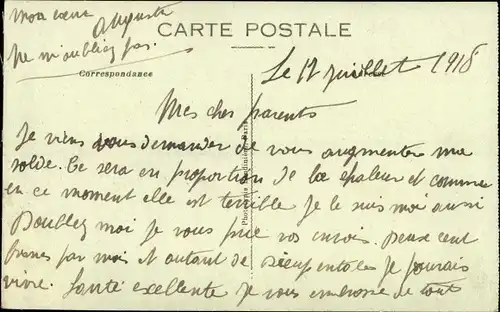 mon cœur Auguste
Ne m'oubliez pas.
CARTE POSTALE
Correspondance
Le 12 juillet 1918
Mes chers parents
Je viens vous demander de vous augmenter ma
solde. Ce sera en proportion de la chaleur et comme
en ce moment elle est terrible Je le suis moi aussi
Doublez moi je vous prie vos envois. Deux cent
francs par mois et autant de je pourais
vivre. Santé excellente Je vous embrasse de tout